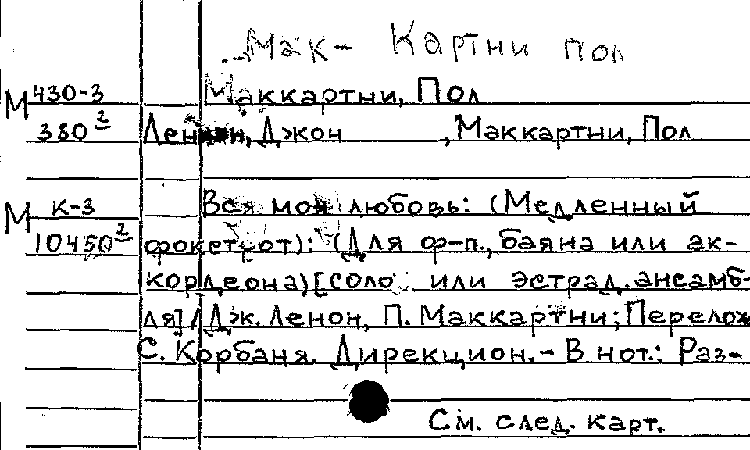 Мак- Картни пол
М 430-3 Маккартни, Пол
380² Леннон, Джон , Маккартни, Пол
М К-3 Вся моя любовь: (Медленный
10450² фокстрот): (Для ф-п., баяна или ак-
кордеона)[соло или эстрад. ансамб-
ля] / Дж. Ленон, П. Маккартни; Перелож.
С. Корбаня. Дирекцион. - В нот.: Раз-
См. след. карт.